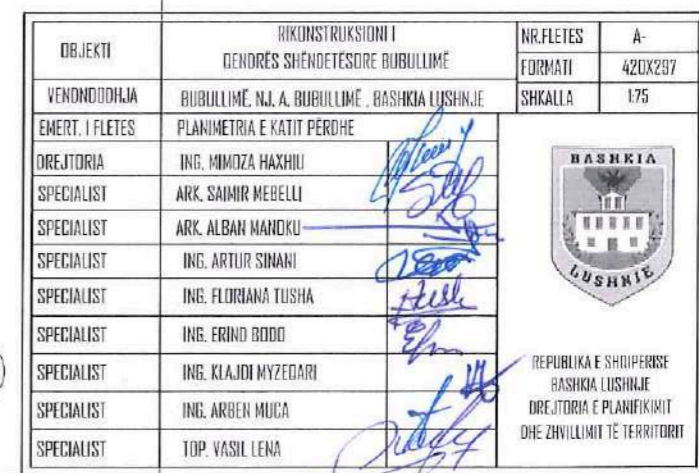 OBJEKTI
RIKONSTRUKSIONI I
QENDRËS SHËNDETËSORE BUBULLIMË
NR.FLETES
A-
FORMATI
420X297
VENDNDODHJA
BUBULLIMË, NJ. A. BUBULLIMË , BASHKIA LUSHNJE
SHKALLA
1:75
EMERT. I FLETES
PLANIMETRIA E KATIT PËRDHE
DREJTORIA
ING. MIMOZA HAXHIU
SPECIALIST
ARK. SAIMIR MEBELLI
SPECIALIST
ARK. ALBAN MANOKU
SPECIALIST
ING. ARTUR SINANI
SPECIALIST
ING. FLORIANA TUSHA
SPECIALIST
ING. ERIND BODO
SPECIALIST
ING. KLAJDI MYZEQARI
SPECIALIST
ING. ARBEN MUCA
SPECIALIST
TOP. VASIL LENA
BASHKIA
LUSHNJE
REPUBLIKA E SHQIPERISE
BASHKIA LUSHNJE
DREJTORIA E PLANIFIKIMIT
DHE ZHVILLIMIT TË TERRITORIT